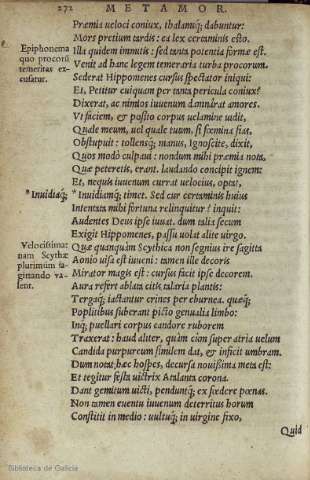 272 METAMOR.
Præmia ueloci coniux, thalamuq; dabuntur:
Mors pretium tardis: ea lex certaminis esto.
Epiphonema
quo procorū
temeritas ex-
cusatur.
Illa quidem immitis: sed tāta potentia formæ est.
Venit ad hanc legem temeraria turba procorum.
Sederat Hippomenes cursus spectator iniqui:
Et, Petitur cuiquam per tāta pericula coniux?
Dixerat, ac nimios iuuenum damnārat amores.
Vt faciem, & posito corpus uelamine uidit,
Quale meum, uel quale tuum, si fœmina fias,
Obstupuit: tollensq; manus, Ignoscite, dixit,
Quos modò culpaui: nondum mihi præmia nota,
Quæ peteretis, erant. laudando concipit ignem:
Et, nequis iuuenum currat uelocius, optat,
*Inuidiaq;
*Inuidiamq; timet. Sed cur certaminis huius
Intentata mihi fortuna relinquitur? inquit:
Audentes Deus ipse iuuat. dum talia secum
Exigit Hippomenes, passu uolat alite uirgo.
Velocissimā
nam Scythæ
plurimùm sa-
gittando va-
lent.
Quæ quanquàm Scythica non segnius ire sagitta
Aonio uisa est iuueni: tamen ille decoris
Mirator magis est: cursus facit ipse decorem.
Aura refert ablata citis talaria plantis:
Tergaq; iactantur crines per eburnea. quæq;
Poplitibus suberant picto genualia limbo:
Inq; puellari corpus candore ruborem
Traxerat: haud aliter, quàm cùm super atria uelum
Candida purpureum simılem dat, & inficit umbram.
Dum notat hæc hospes, decursa nouissima meta est:
Et tegitur festa uictrix Atalanta corona.
Dant gemitum uicti, penduntq; ex fœdere pœnas.
Non tamen euentu iuuenum deterritus horum
Constitit in medio: uultuq; in uirgine fixo,
Quid
Biblioteca de Galicia